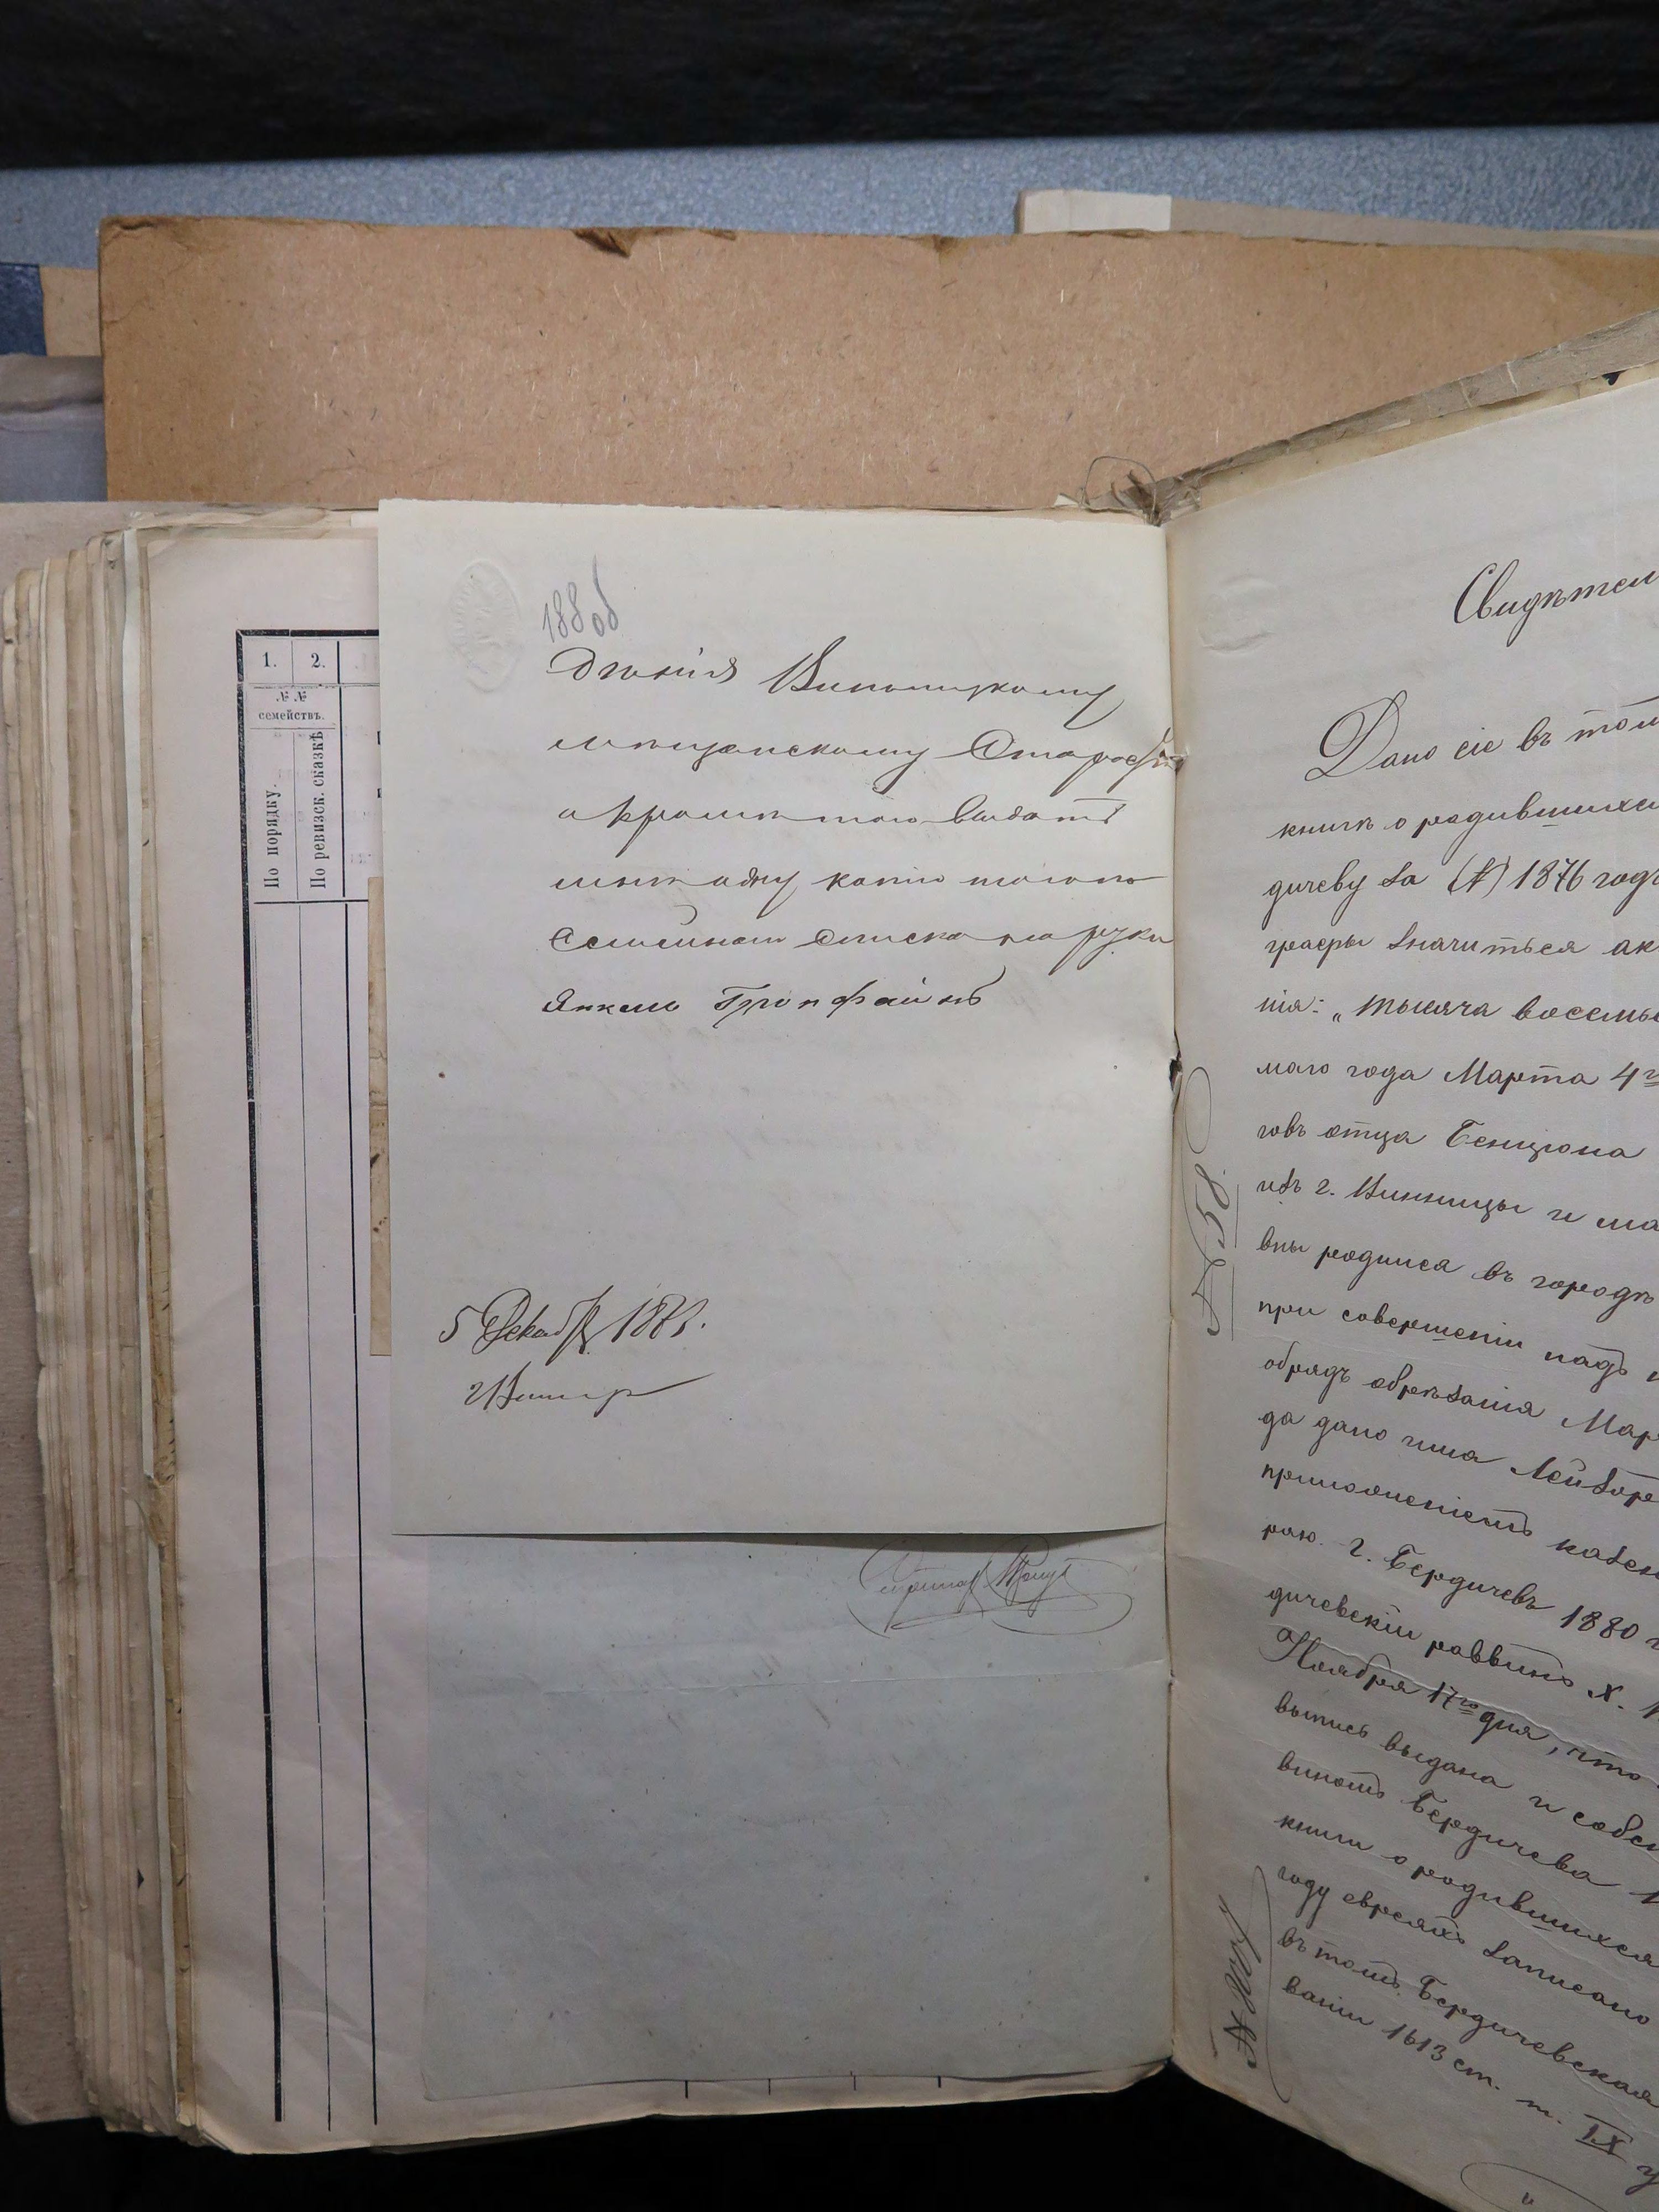 1.
2.
№ №
семействъ.
По порядку.
По ревизск. сказкѣ
188 об
дѣнія Винницкому
мѣщанскому Старостѣ
и выдать
мнѣ одну копію
Семейнаго списка на руки
Янкель
5 Декабр 188
Свидѣтел
Дано сіе въ том
книгѣ о родившихс
дичеву за (№) 1876 годъ
графы значиться ак
нія: „тысяча восемьс
маго года Марта 4го
говъ отца Бенціона
изъ г. Винницы и ма
вны родился въ городѣ
при совершеніи надъ н
обрядъ обрѣзанія Мар
да дано имя Лейзоръ
приложеніемъ казен
раю. г. Бердичевъ 1880 г
дичевскій раввинъ Х.
Ноября 17го дня, что
выпись выдана и собс
виномъ Бердичева
книги о родившихся
году евреяхъ записано
въ томъ Бердичевская
ваніи 1613 ст. т. IX у
№ 58.